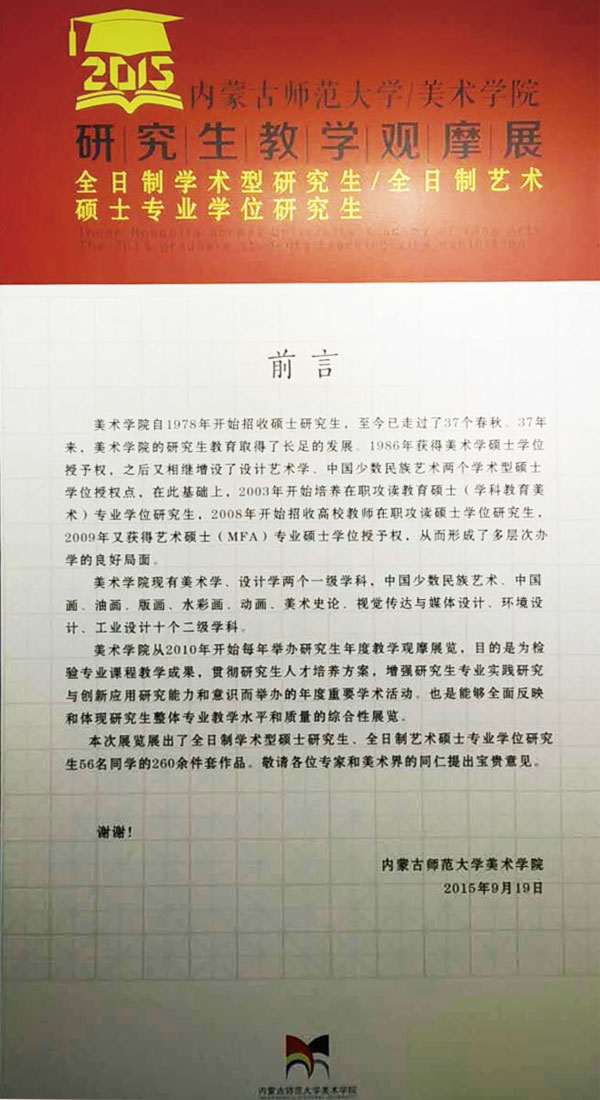 2015
内蒙古师范大学/美术学院
研究生教学观摩展
全日制学术型研究生/全日制艺术
硕士专业学位研究生
Inner Mongolia normal University Academy of fine Arts
The 2015 graduate students teaching view exhibition
前言
美术学院自1978年开始招收硕士研究生，至今已走过了37个春秋。37年
来，美术学院的研究生教育取得了长足的发展。1986年获得美术学硕士学位
授予权，之后又相继增设了设计艺术学、中国少数民族艺术两个学术型硕士
学位授权点，在此基础上，2003年开始培养在职攻读教育硕士（学科教育美
术）专业学位研究生，2008年开始招收高校教师在职攻读硕士学位研究生，
2009年又获得艺术硕士（MFA）专业硕士学位授予权，从而形成了多层次办
学的良好局面。
美术学院现有美术学、设计学两个一级学科，中国少数民族艺术、中国
画、油画、版画、水彩画、动画、美术史论、视觉传达与媒体设计、环境设
计、工业设计十个二级学科。
美术学院从2010年开始每年举办研究生年度教学观摩展览，目的是为检
验专业课程教学成果，贯彻研究生人才培养方案，增强研究生专业实践研究
与创新应用研究能力和意识而举办的年度重要学术活动。也是能够全面反映
和体现研究生整体专业教学水平和质量的综合性展览。
本次展览展出了全日制学术型硕士研究生、全日制艺术硕士专业学位研究
生56名同学的260余件套作品。敬请各位专家和美术界的同仁提出宝贵意见。
谢谢！
内蒙古师范大学美术学院
2015年9月19日
内蒙古师范大学美术学院